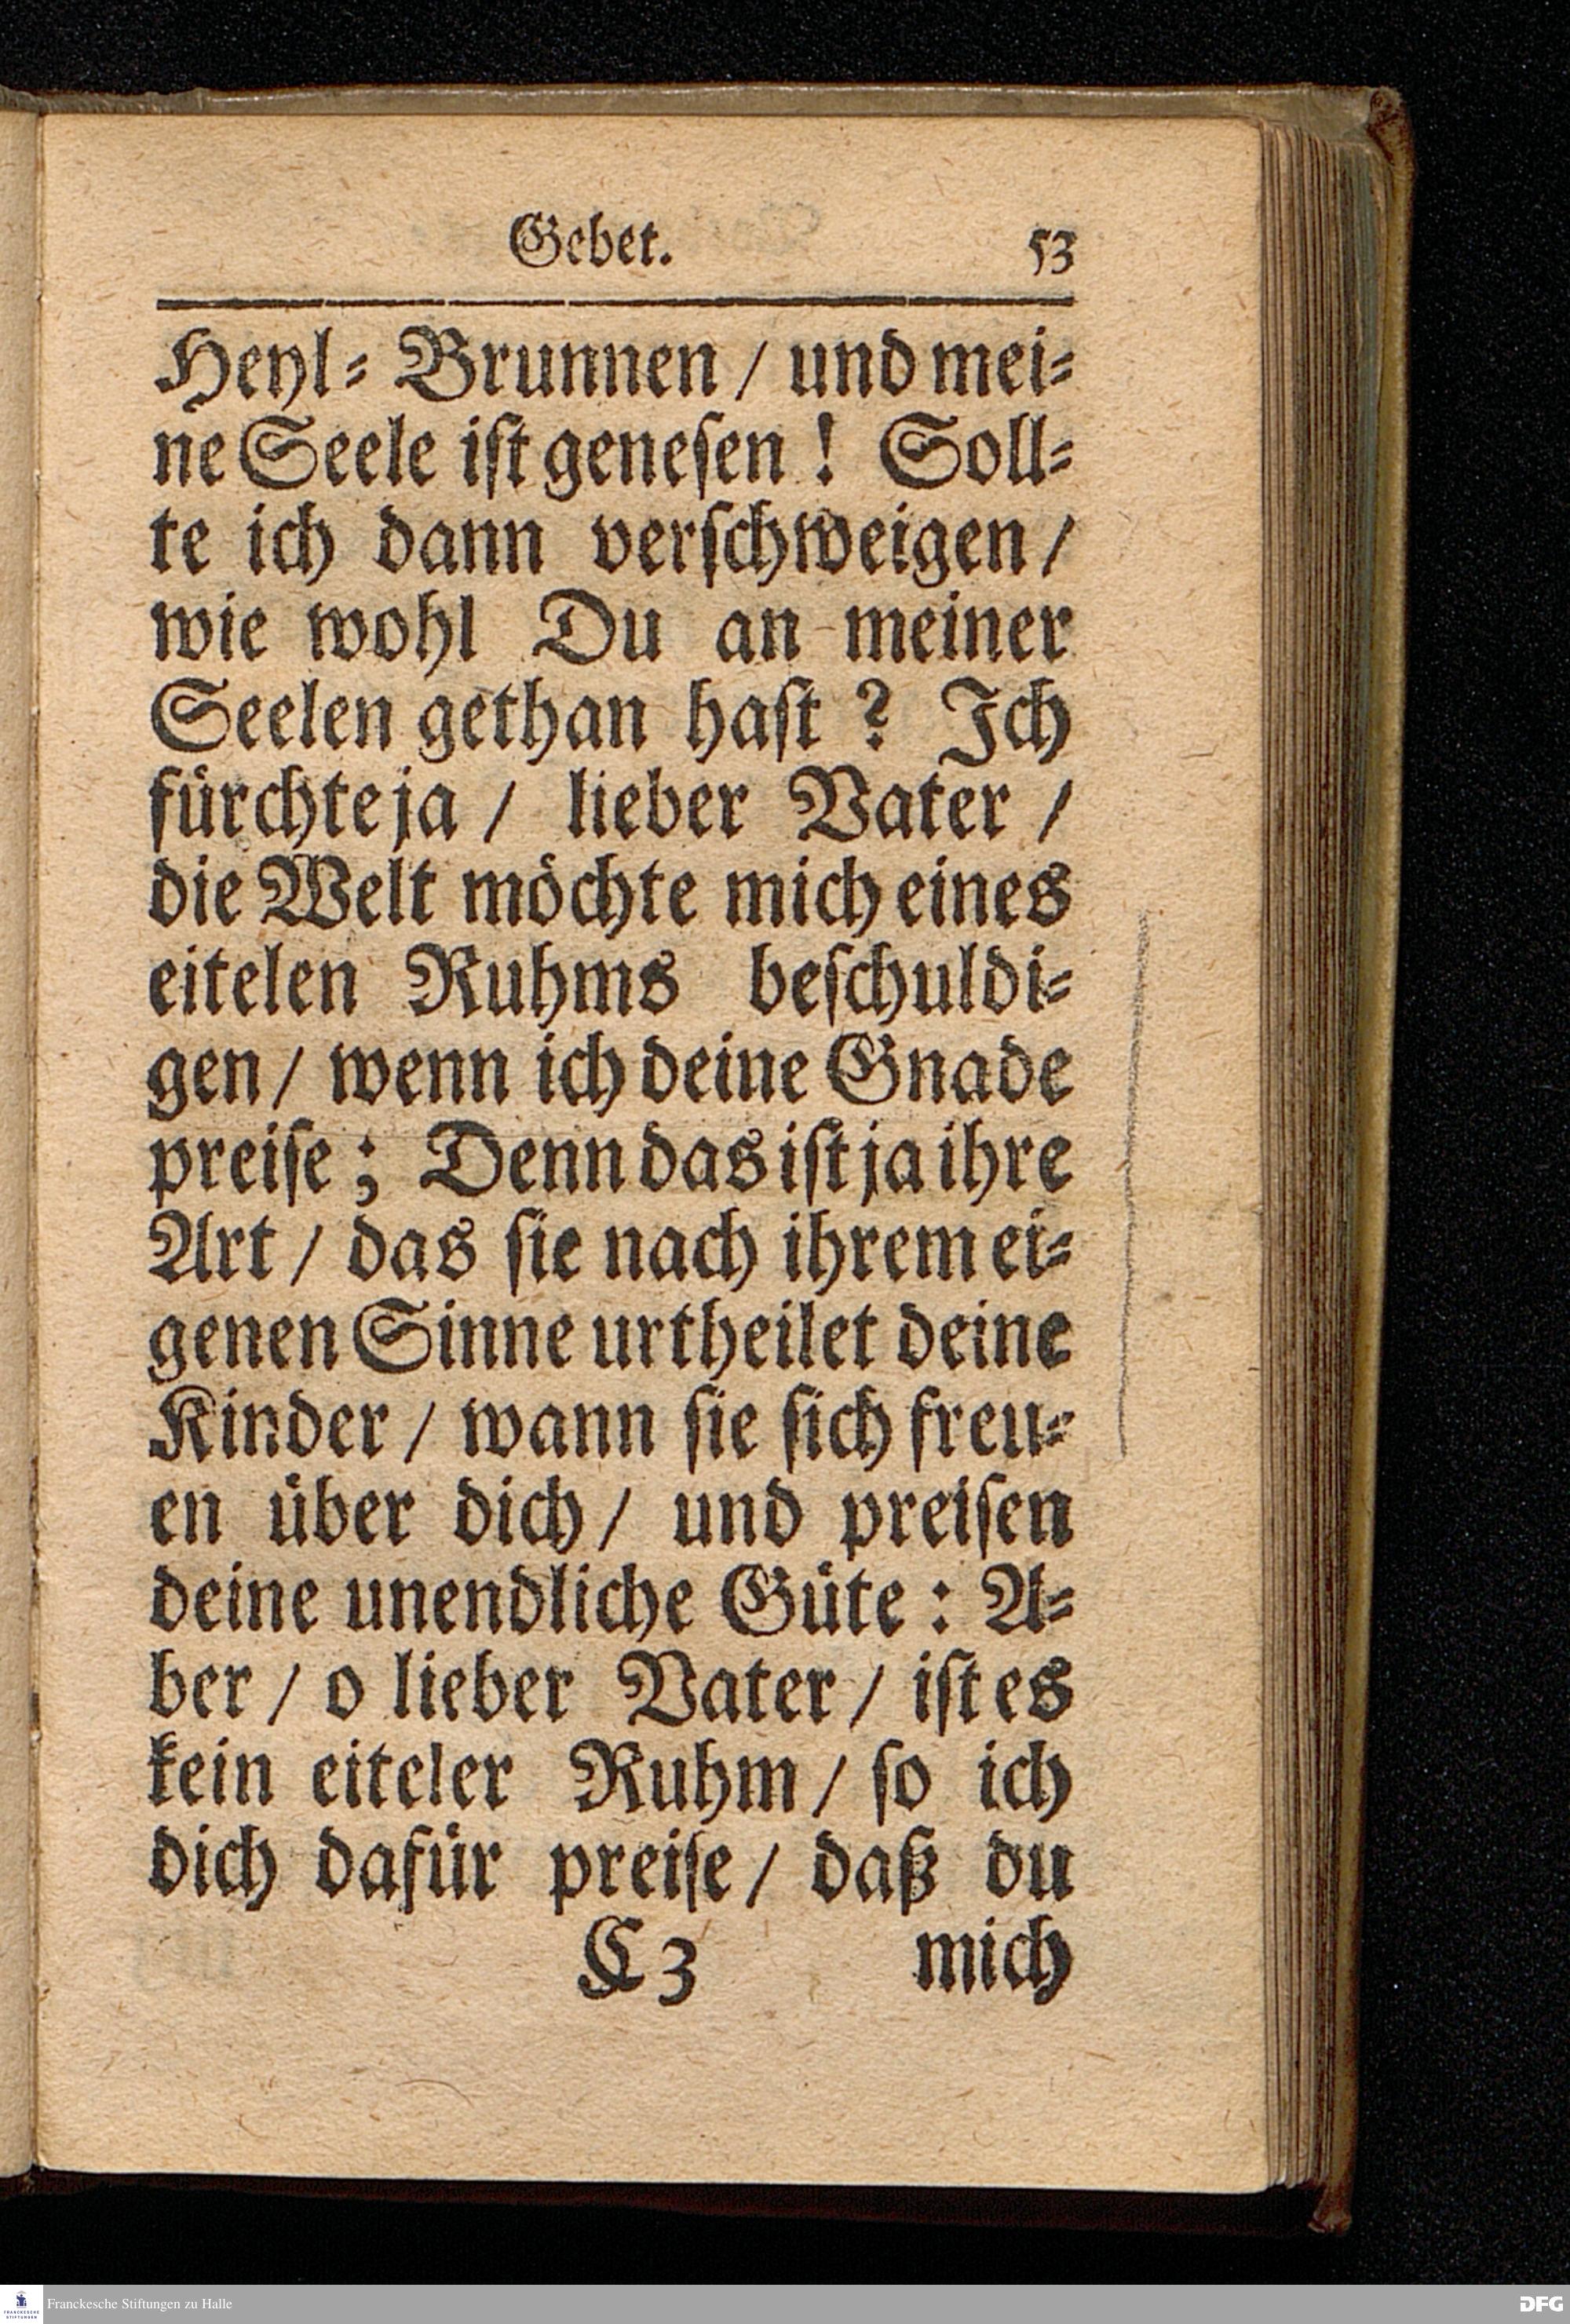 Gebet. 53
Heyl⸗ Brunnen / und mei⸗
ne Seele iſt geneſen ! Soll⸗
te ich dann verſchweigen /
wie wohl Du an meiner
Seelen gethan haſt ? Ich
fürchte ja / lieber Vater /
die Welt möchte mich eines
eitelen Ruhms beſchuldi⸗
gen / wenn ich deine Gnade
preiſe ; Denn das iſt ja ihre
Art / das ſie nach ihrem ei⸗
genen Sinne urtheilet deine
Kinder / wann ſie ſich freu⸗
en über dich / und preiſen
deine unendliche Güte : A⸗
ber / o lieber Vater / iſt es
kein eiteler Ruhm / ſo ich
dich dafür preiſe / daß du
C 3 mich
FRANCKESCHE STIFTUNGEN
Franckesche Stiftungen zu Halle
DFG